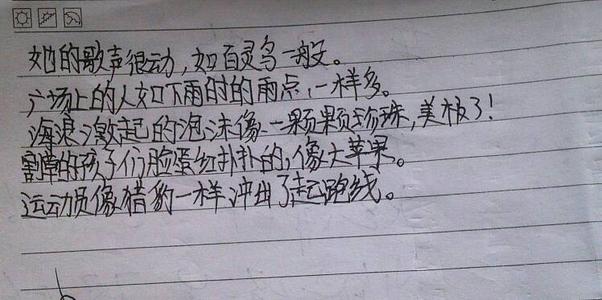 她的歌声很动,如百灵鸟一般。
广场上的人如下雨时的雨点,一样多。
海浪激起的泡沫像一颗颗珍珠,美极了!
割草的孩子们脸蛋红扑扑的,像大苹果。
运动员像猎豹一样冲出了起跑线。